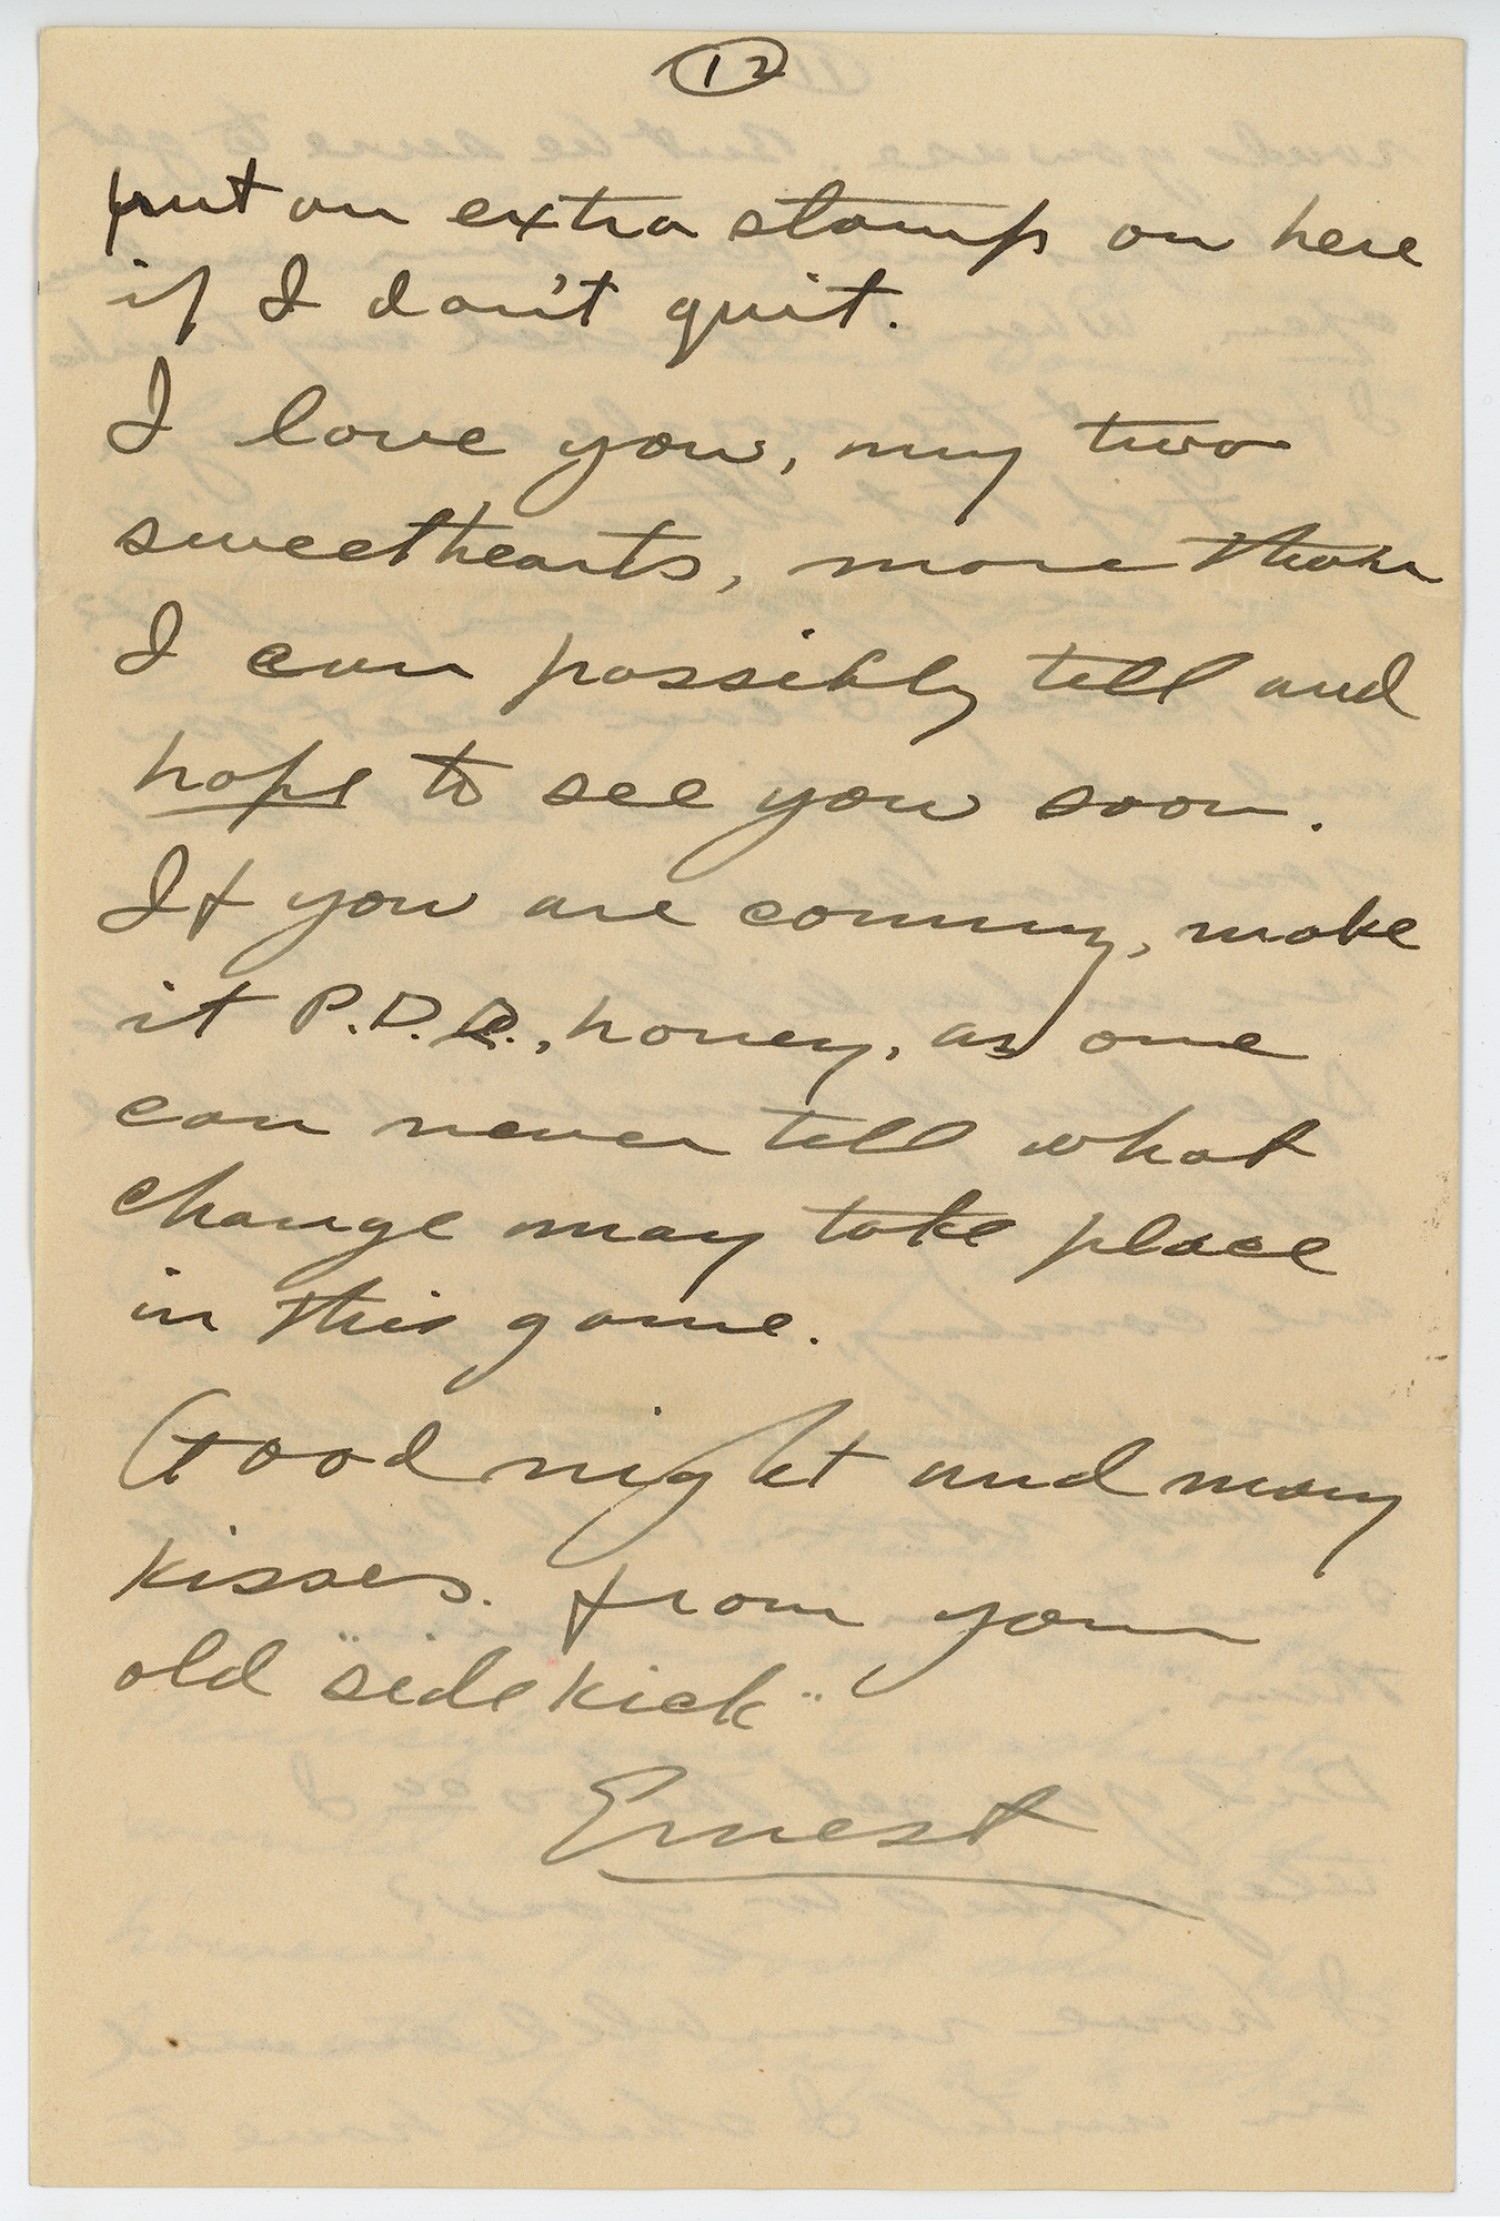 12
put an extra stamp on here
if I don't quit.
I love you, my two
sweethearts, more than
I can possibly tell and
hope to see you soon.
If you are coming, make
it P.D.Q., honey, as one
can never tell what
change may take place
in this game.
Good night and many
kisses. from your
old "sidekick"
Ernest